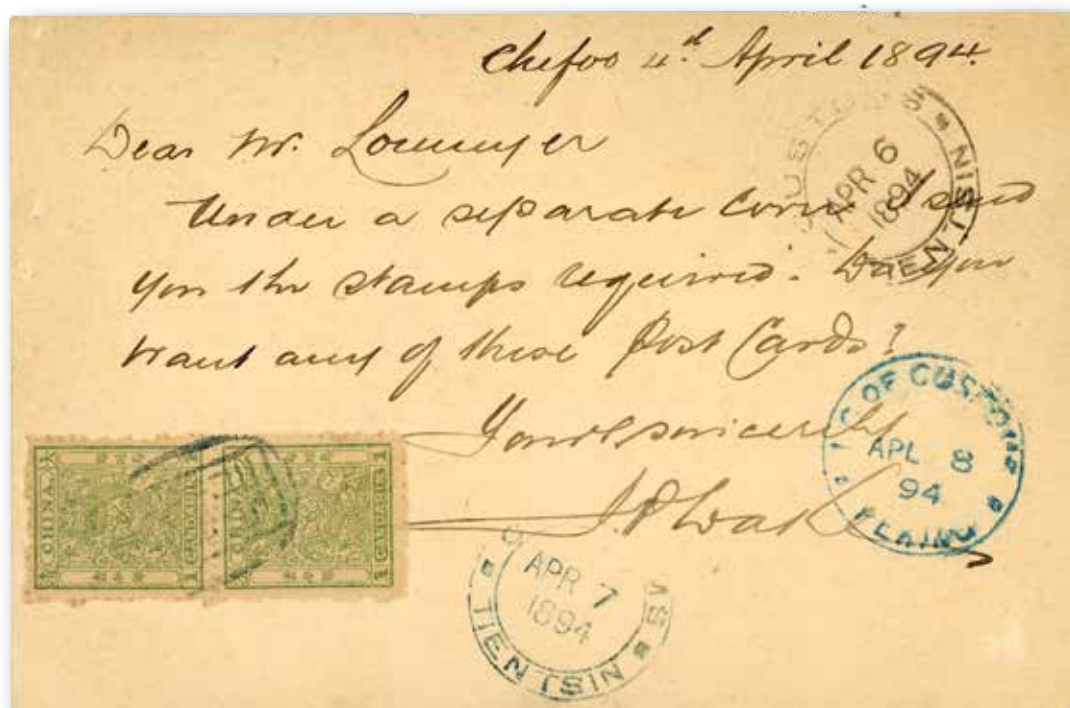 Chefoo 4th April 1894.
Dear Mr.
Under a separate cover I send
you the stamps required. Do you
want any of these Post Cards?
Yours sincerely
CUSTOMS TIENTSIN
APR 6
1894
I.G. OF CUSTOMS
APL 8
94
PEKING
CHINA 1 CANDARIN 1
CHINA 1 CANDARIN 1
APR 7
1894
TIENTSIN